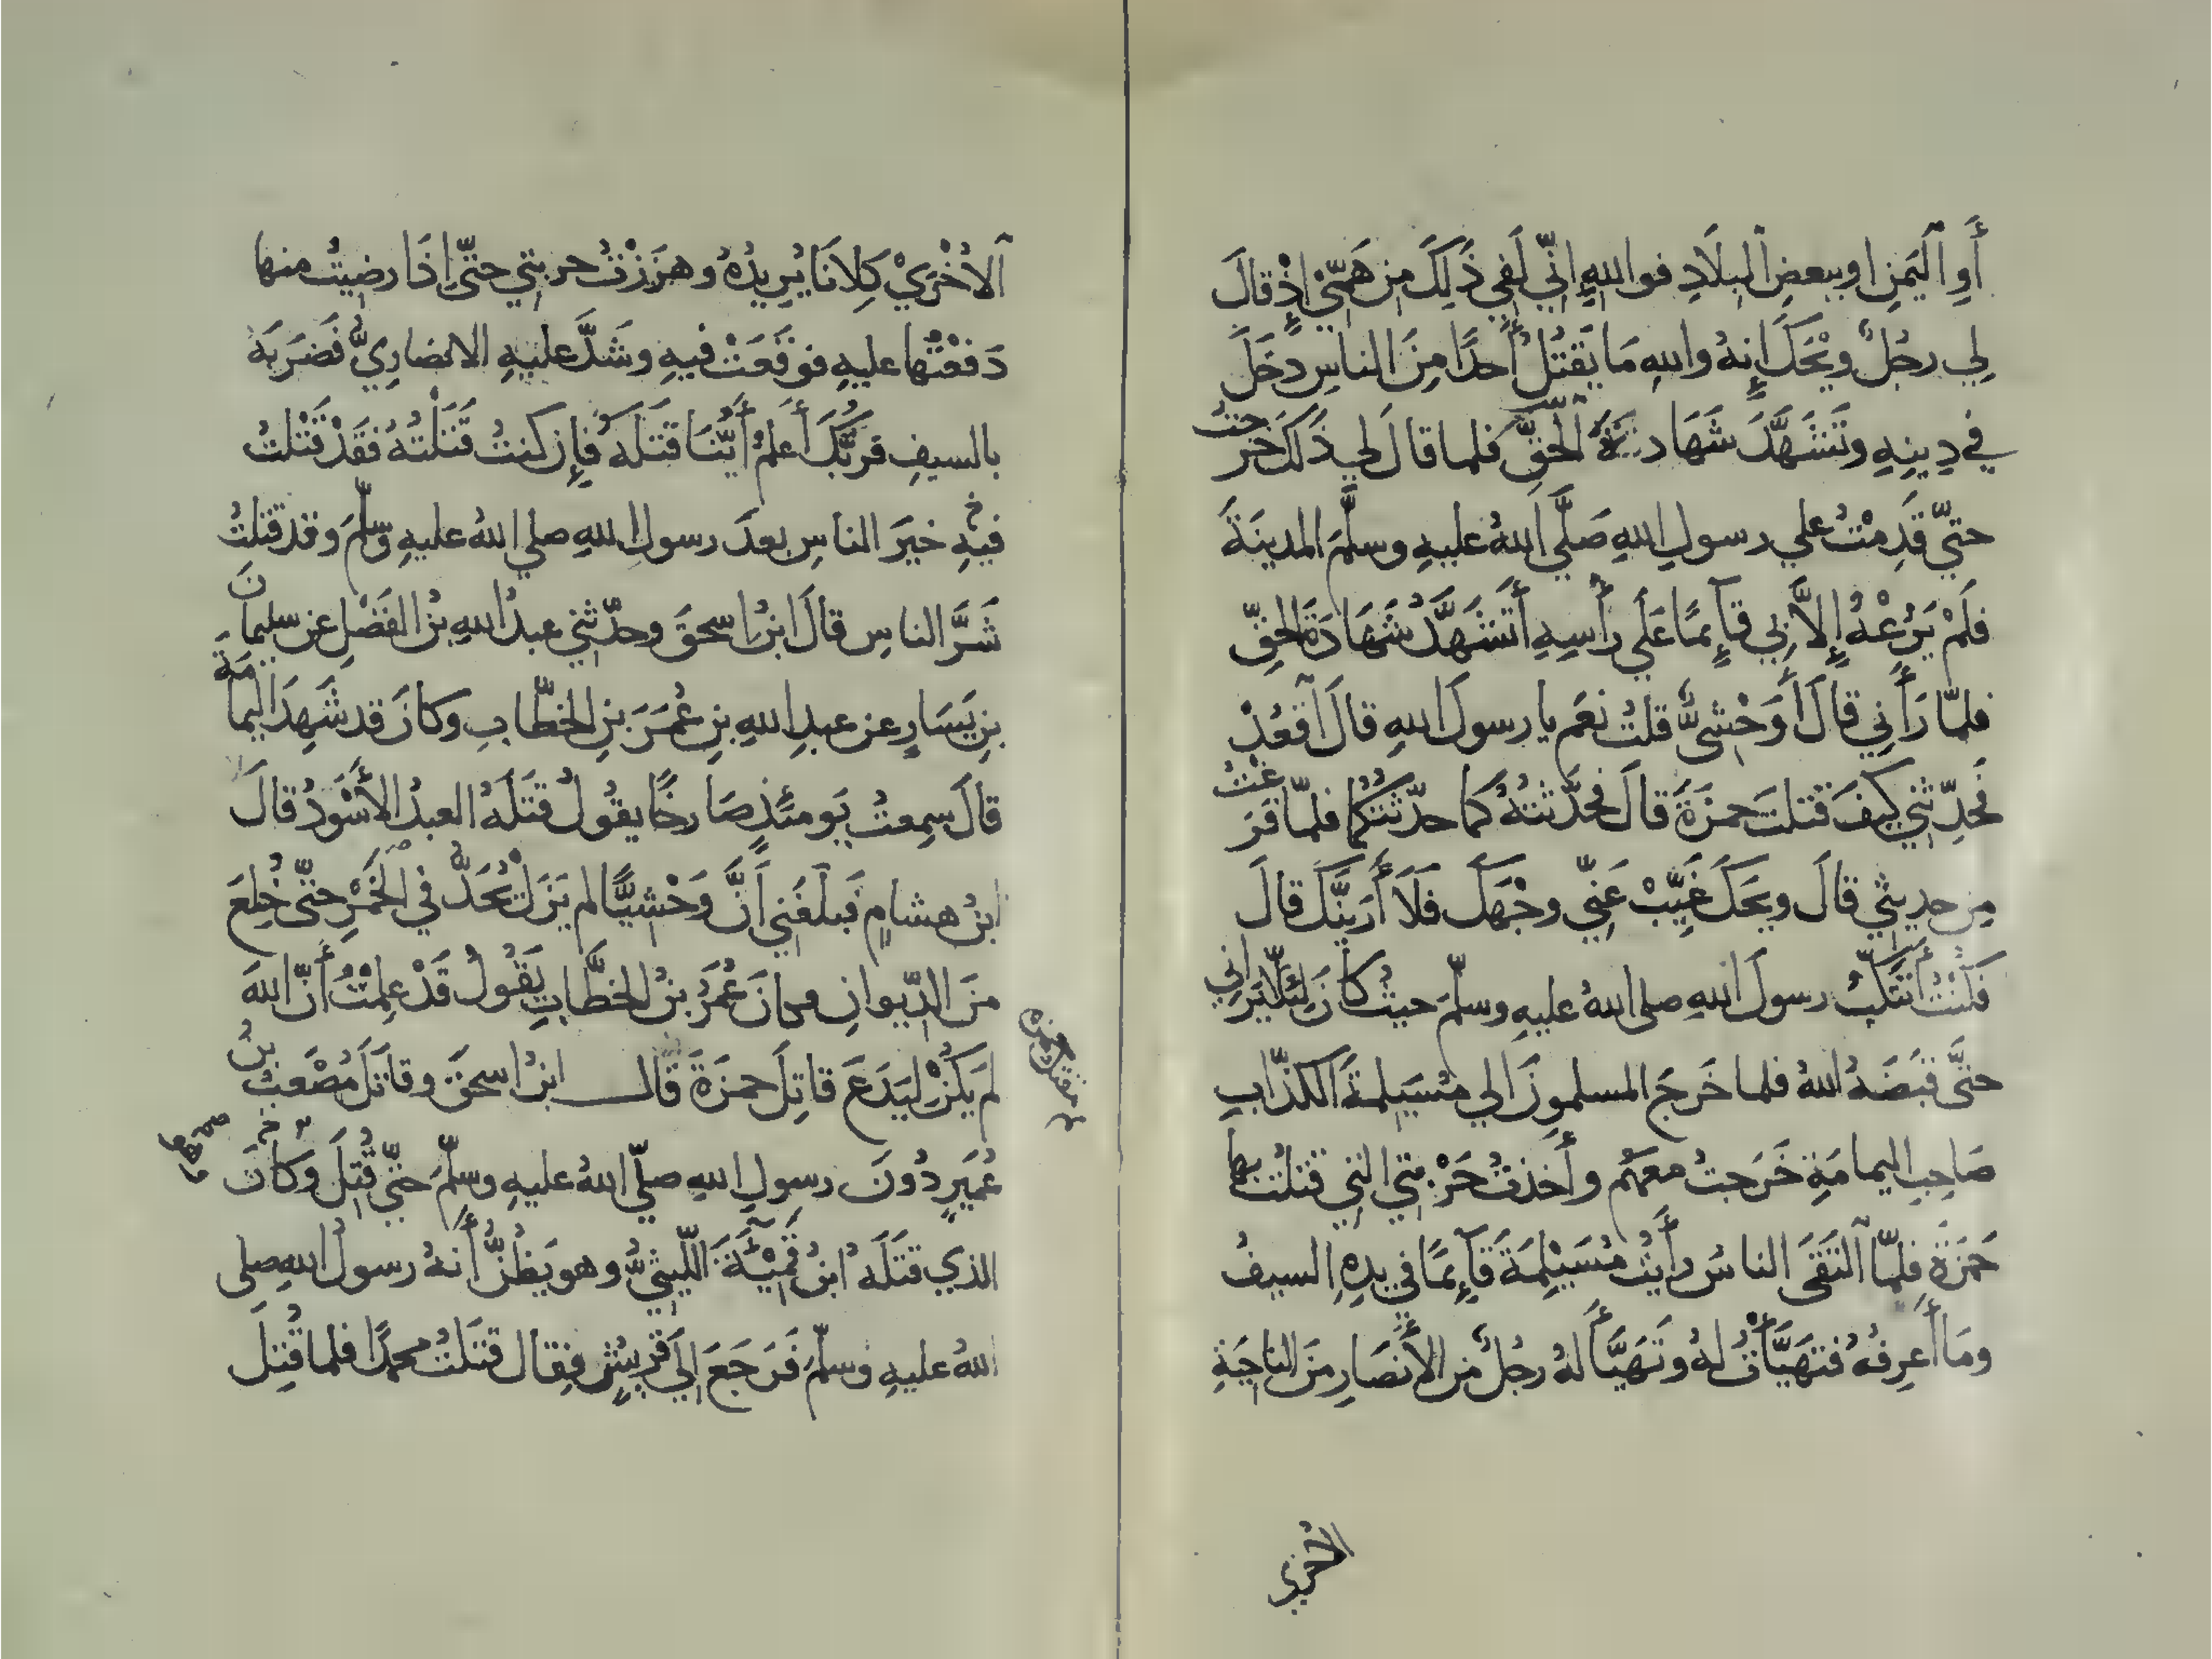 أَوِ ٱلْيَمَنِ اوببعضِ ٱلبلَادِ فواللهِ إنِّي لَفِي ذَلِكَ مِن هَمِّي إذْ قالَ
لِي رجُلٌ ويْحَكَ إِنهُ واللهِ مَا يَقتُلُ أَحدًا مِنَ الناسِ دخَلَ
في دِينِهِ وتَشَهَّدَ شَهَادَةَ ٱلحَقِّ فلما قالَ لي ذَلكَ خرجتُ
حتيّ قَدِمْتُ علي رسولِ اللهِ صَلَّي اللهُ عليهِ وسلَّمَ المدينَةَ
فَلَمْ يَرُعْهُ إِلاَّ بِي قَآئِمًا عَلَي رأْسِهِ أَتَشَهَّدُ شَهَادَةَ الحقِّ
فلمّا رَأَنِي قالَ أَوَحْشيٌّ قلتُ نعَم يا رسولَ اللهِ قالَ ٱقعُدْ
فَحدِّثني كيفَ قتلتَ حمزَةَ قالَ فحدَّثتُهُ كما حدّثتُكُما فلمّا فرَغْتُ
مِن حديثِي قالَ ويحَكَ غَيِّبْ عَنِّي وجْهَكَ فَلَا أَرَيَنَّكَ قالَ
فكنْتُ أَتنَكَّبُ رسولَ اللهِ صلى اللهُ عليهِ وسلّمَ حيثُ كانَ لِئلّا يَرَاني
حتَّى قبَضَهُ اللهُ فلما خَرَجَ المسلمونَ الي مُسَيلِمةَ الكذّابِ
صَاحِبِ اليمامَةِ خَرَجتُ معَهُم وأَخذتُ حَرْبتي التي قتلتُ بها
حَمزَةَ فلمّا ٱلتَقَى الناسُ رأَيتُ مُسَيْلِمَةَ قَآئِمًا في يدِهِ السيفُ
ومَا أَعرِفُهُ فتهَيَّأْتُ لهُ وتَهَيَّأَ لهُ رجُلٌ من الأَنصَارِ منَ الناحِيَةِ
الاخري
ٱلاُخْرَيْ كِلاَنَا يُرِيدُهُ وهزَزْتُ حربتي حتّى إِذَا رضِيتُ منها
دَفعْتُها عليهِ فوقَعَتْ فيهِ وشَدَّ عليهِ الانصَارِيُّ فَضَرَبَهُ
بالسيفِ فرَبُّكَ أَعلَمُ أَيُّنا قَتَلَهُ فإِن كنتُ قَتَلْتُهُ فقَدْ قَتَلتُ
خيرَ الناسِ بعدَ رسولِ اللهِ صلي اللهُ عليهِ وسلّمَ وقد قَتلتُ
شَرَّ الناسِ قالَ ابنُ اسحقَ وحدّثني عبدُ اللهِ بنُ الفَضْلِ عن سليمانَ
بنِ يَسَارٍ عن عبدِ اللهِ بنِ عُمَرَ بنِ الخطّابِ وكانَ قد شَهِدَ اليمامَةَ
قالَ سمِعتُ يَومئذٍ صَارخًا يقولُ قَتَلَهُ العبدُ الأَسْوَدُ قالَ
ابنُ هشامٍ فَبلغَني أَنَّ وَحْشِيًّا لم يَزَلْ يُحَدُّ في الخَمْرِ حتّى خُلِعَ
منَ الدّيوانِ فكانَ عُمَرُ بنُ الخطَّابِ يَقُولُ قَدْ عَلِمْتُ أَنَّ اللهَ
لم يَكُنْ لِيَدَعَ قاتِلَ حمزَةَ قالـــ ابنُ اسحقَ وقاتَلَ مُصْعَبُ بنُ
عُمَيرٍ دُونَ رسولِ اللهِ صلّي اللهُ عليهِ وسلّمَ حتّي قُتِلَ وَكانَ
الذي قَتَلَهُ ابنُ قَمِيْئَةَ اللَّيثِيُّ وهو يَظُنُّ أَنهُ رسولُ اللهِ صلى
اللهُ عليهِ وسلّمَ فَرَجَعَ إلَي قُريشٍ فقال قتَلتُ محمدًا فلما قُتِلَ